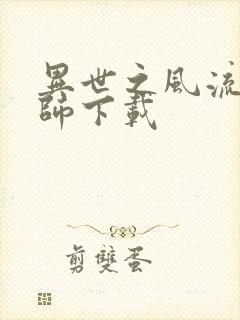 異世之風流
師下載
剪雙蛋